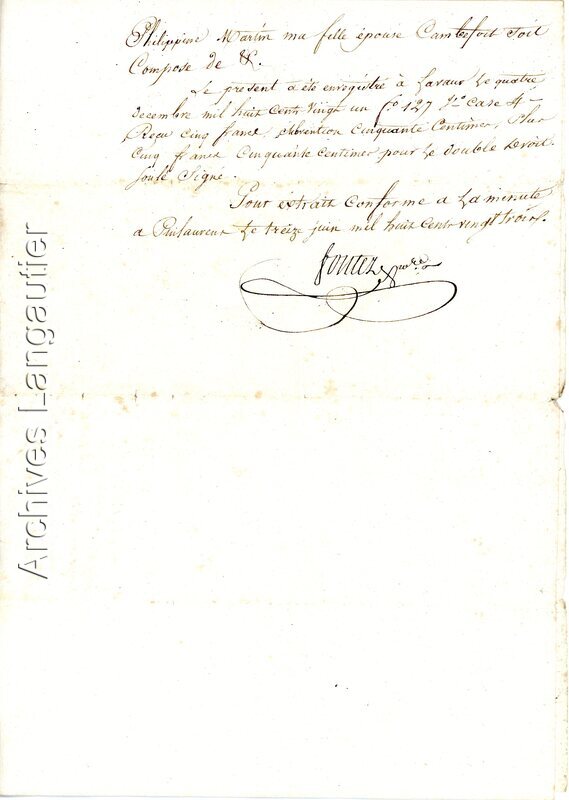 Philippine Martin ma fille épouse Cambefort soit
Compose de &.
Le present a été enregistré à Lavaur Le quatre
decembre mil huit cent vingt un fo 127 case 4
Reçu cinq francs, subvention cinquante Centimes, Plus
cinq francs cinquante centimes pour Le double Devoit
Signé.
Pour extrait Conforme a La minute
a Puilaurens Le treize juin mil huit cent vingt trois.
Archives Langautier